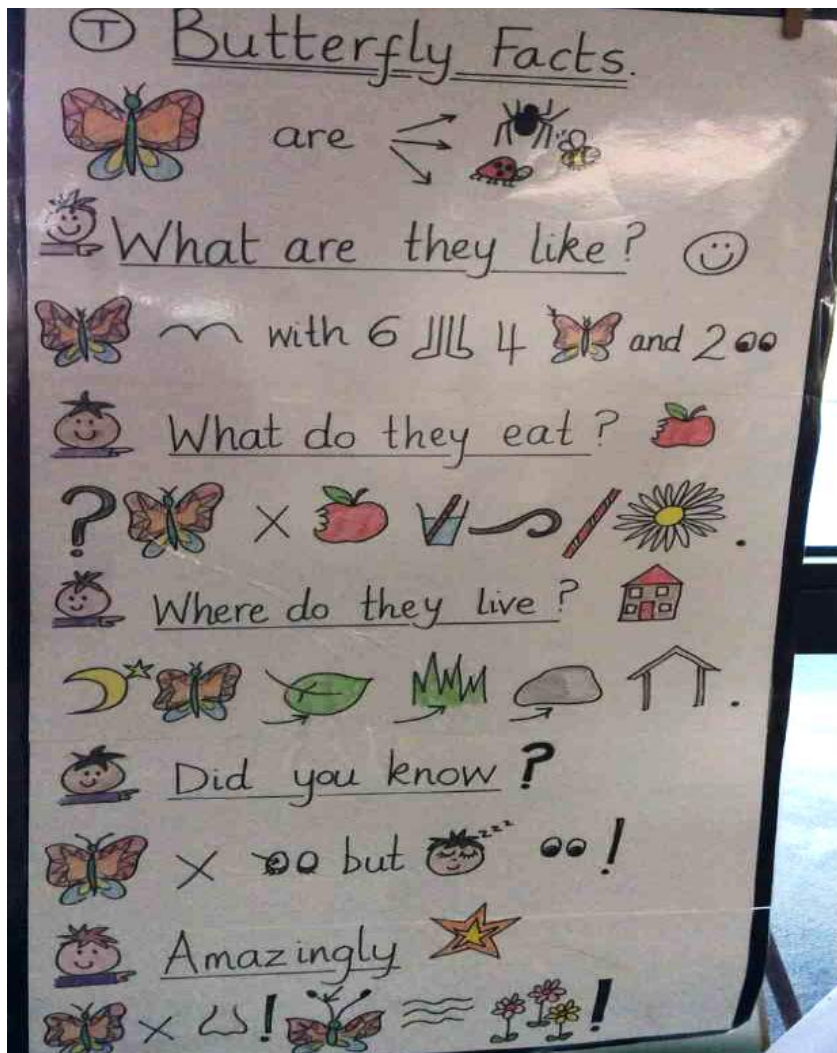 T Butterfly Facts.
are
What are they like?
with 6 4 and 2
What do they eat?
? X .
Where do they live?
.
Did you know?
X but zzz !
Amazingly
X ! !